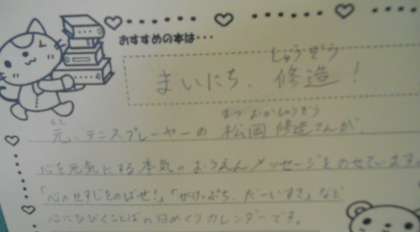 おすすめの本は…
しゅうぞう
まいにち、修造！
もと まつ おか しゅうぞう
元、テニスプレーヤーの 松岡 修造さんが、
心を元気にする本気のおうえんメッセージをのせています。
「心のせすじをのばせ！」「がけっぷち、だーいすき」など
心にひびくことばの日めくりカレンダーです。